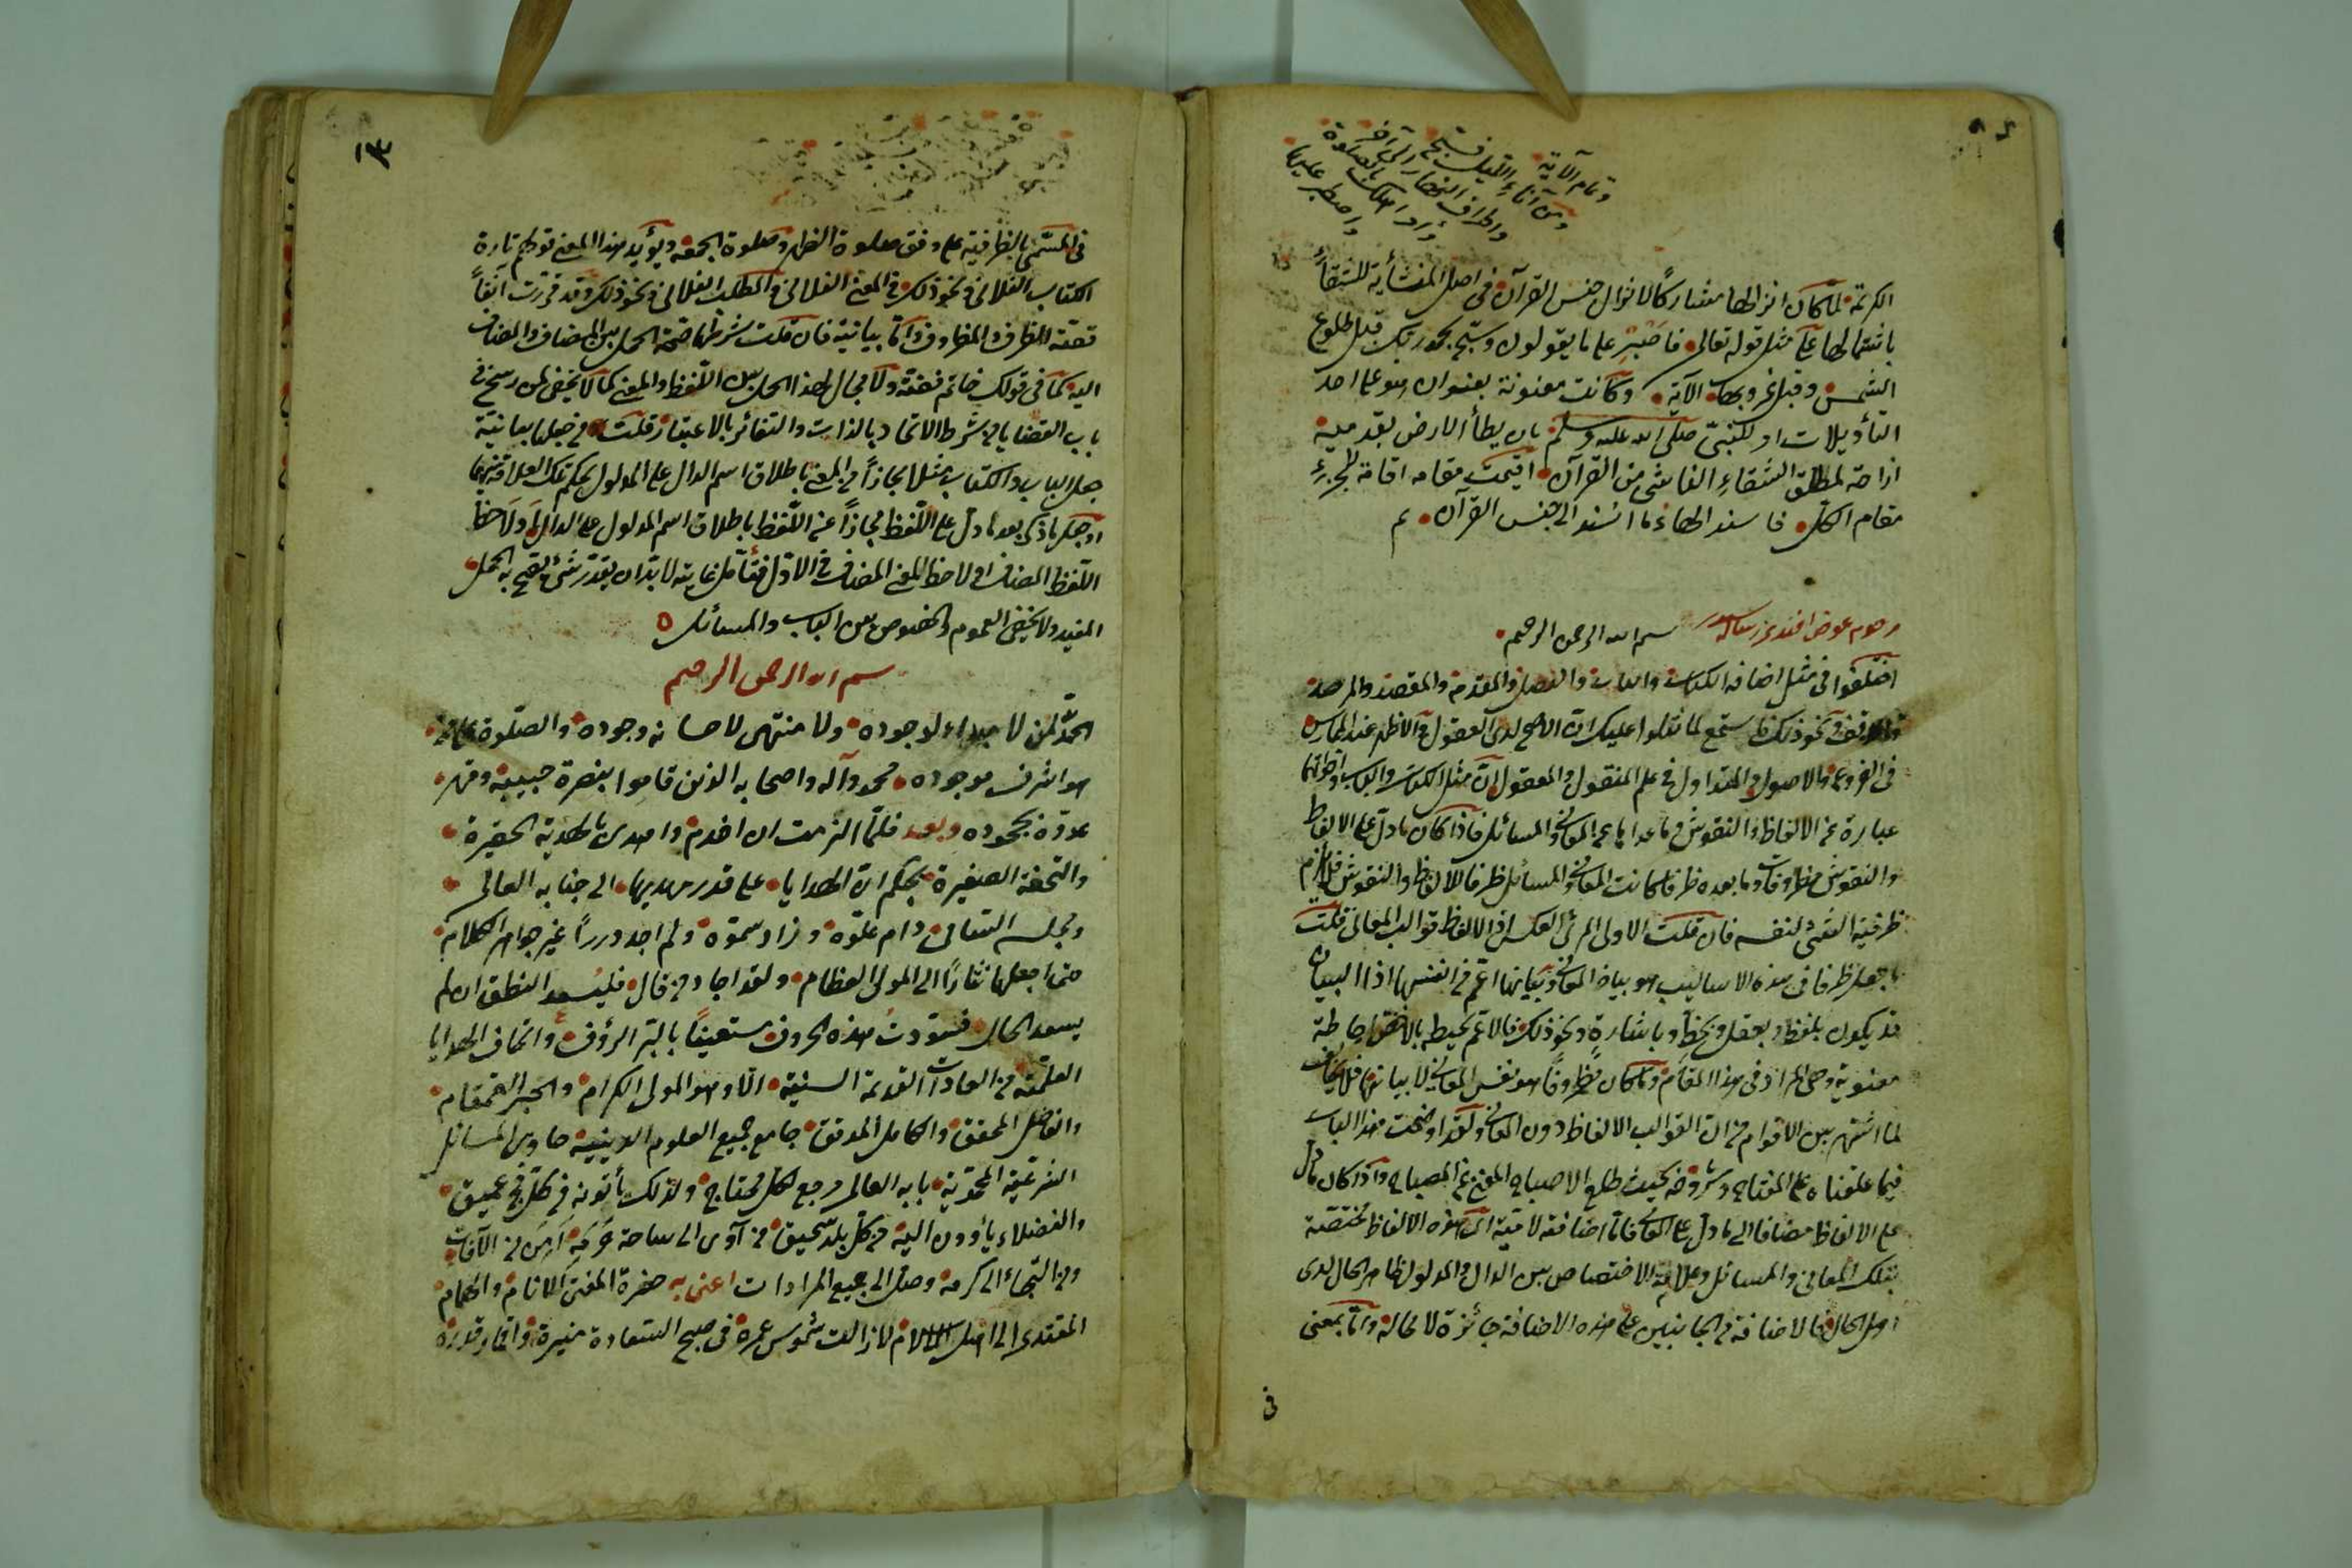 وتمام الآية
ومن آناء الليل فسبح
واطراف النهار الى آخر
وأمر اهلك بالصلوة
واصطبر عليها
الكريمة لما كان انزالها مشاركا لانزال جنس القرآن في اصل المنشأية للشقاء
باشتمالها على مثل قوله تعالى فاصبر على ما يقولون وسبح بحمد ربك قبل طلوع
الشمس وقبل غروبها الآية وكانت معنونة بعنوان هو على احد
التأويلات امر للنبي صلى الله عليه وسلم بان يطأ الارض بقدميه
ازاحة لمطلق الشقاء الناشئ من القرآن اقيمت مقامه اقامة الجزء
مقام الكل فاسند اليها ما اسند الى جنس القرآن تم
مرحوم عوض افندى رساله سيدر
بسم الله الرحمن الرحيم
اختلفوا في مثل اضافة الكتاب والباب والفصل والمقدمة والمقصد والمرصد
والموقف ونحو ذلك فاستمع لما نتلوا عليك ان الاصح لدى العقول والاظهر عند الممارس
في الفروع والاصول والمتداول في علم المنقول والمعقول ان مثل الكتاب والباب واخواتهما
عبارة عن الالفاظ والنقوش وما عداها عن المعاني والمسائل فاذا كان ما دل على الالفاظ
والنقوش مظروفا وما بعده ظرفا كانت المعاني والمسائل ظرفا للالفاظ والنقوش فلا يلزم
ظرفية الشئ لنفسه فان قلت الاولى العكس اذ الالفاظ قوالب المعاني قلت
ما جعل ظرفا في هذه الاساليب هو بيان المعاني وبيانها اعم من انفسها اذ البيان
قد يكون بلفظ وبعقل وبخط وباشارة ونحو ذلك فالاعم يحيط بالاخص احاطة
معنوية وهي المراد في هذا المقام وما كان مظروفا هو نفس المعاني لا بيانها فلا يخالف
لما اشتهر بين الاقوام من ان القوالب الالفاظ دون المعاني ولقد اوضحت هذا الباب
فيما علقناه على المفتاح وشروحه بحيث طلع الاصباح المغني عن المصباح واذا كان ما دل
على الالفاظ مضافا الى ما دل على المعاني فاما اضافة لامية اى هذه الالفاظ مختصة
بتلك المعاني والمسائل وعلاقة الاختصاص بين الدال والمدلول ظاهر الحال لدى
اهل الحال فالاضافة في الجانبين على هذه الاضافة جائزة لا محالة واما بمعنى
في
١٣
في المسمى بالظرفية على وفق صلوة الظهر وصلوة الجمعة ويؤيد هذا المعنى قولهم تارة
الكتاب الفلاني ونحو ذلك في المعنى الفلاني والمطلب الفلاني ونحو ذلك وقد قررت آنفا
قصة الظرف والمظروف واما بيانية فان قلت شرطها صحة الحمل بين المضاف والمضاف
اليه كما في قولك خاتم فضة ولا مجال لهذا الحمل بين اللفظ والمعنى كما لا يخفى لمن رسخ في
باب القضايا من شرط الاتحاد بالذات والتغائر بالاعتبار قلت في جعلها بيانية
جعل الباب والكتاب مثلا مجازا في المعنى باطلاق اسم الدال على المدلول بحكم تلك العلاقة بينهما
او جعل ما ذكر بعد ما دل على اللفظ مجازا عن اللفظ باطلاق اسم المدلول على الدال ولاحظ
اللفظ المضاف او لاحظ المعنى المضاف في الاول فتأمل غايته لا بد ان يقدر شئ يصح به الحمل
المفيد ولا يخفى العموم والخصوص بين الباب والمسائل
بسم الله الرحمن الرحيم
الحمد لمن لا مبداء لوجوده ولا منتهى لاحسانه وجوده والصلوة على من
هو اشرف موجوده محمد وآله واصحابه الذين قاموا بنصرة حبيبه وقهر
عدوه بجحوده وبعد فلما التزمت ان اخدم واهدى بالهدية الحقيرة
والتحفة الصغيرة بحكم ان الهدايا على قدر مهديها الى جنابه العالى
ومجلسه المتعالى دام علوه وزاد سموه ولم اجد دررا غير جواهر الكلام
حتى اجعلها نثارا الى المولى العظام ولقد اجاد من قال فليسعد النطق ان لم
يسعد الحال فسودت هذه الحروف مستعينا بالبر الرؤف واتحاف الهدايا
العلمية من العادات القديمة السنية الا وهو المولى الكرام والحبر القمقام
والفاضل المحقق والكامل المدقق جامع جميع العلوم الدينية حاوى المسائل
الشرعية المحمدية بابه العالى مرجع لكل محتاج ولذلك يأتونه من كل فج عميق
والفضلاء يأوون اليه من كل بلد سحيق من آوى الى ساحة حرمه امن من الآفات
ومن التجاء الى كرمه وصل الى جميع المرادات اعنى به حضرة المفتى الانام والهمام
المقتدى الى اهل الاسلام لا زالت شموس عمره في صبح السعادة منيرة واقمار قدره